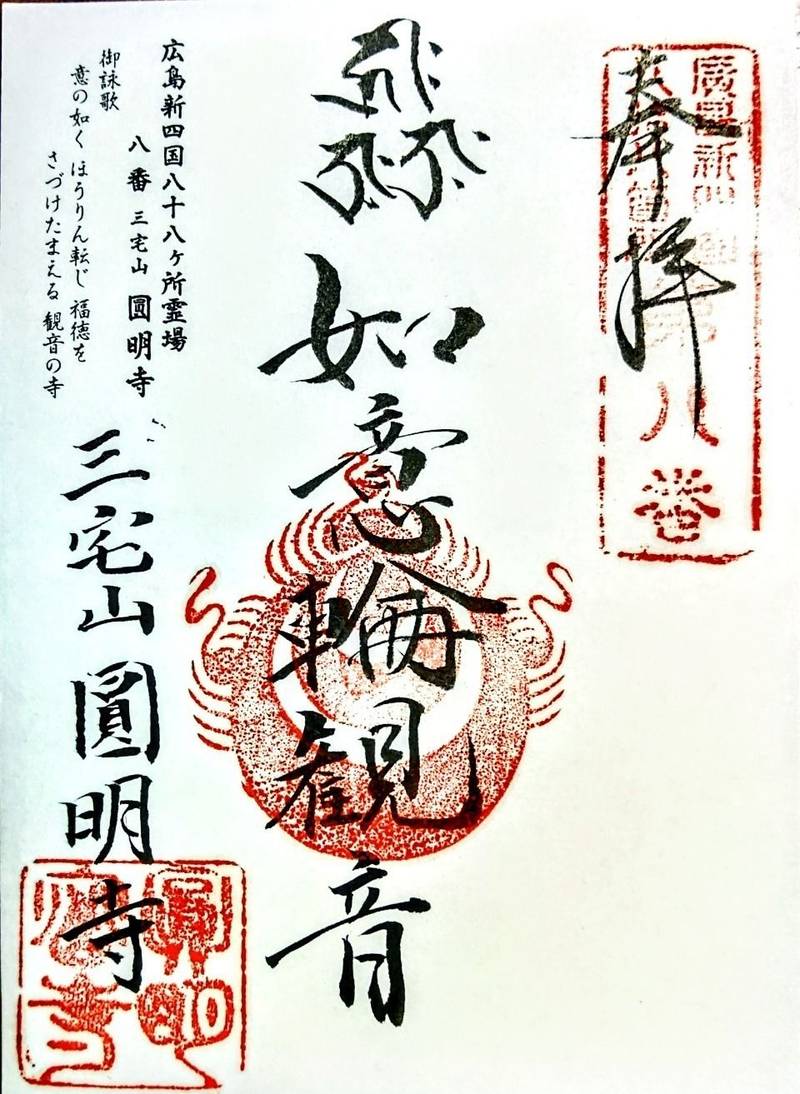 奉拝
第八番
如意輪観音
広島新四国八十八ヶ所霊場
八番 三宅山 圓明寺
御詠歌
意の如く ほうりん転じ 福徳を
さづけたまえる 観音の寺
三宅山 圓明寺